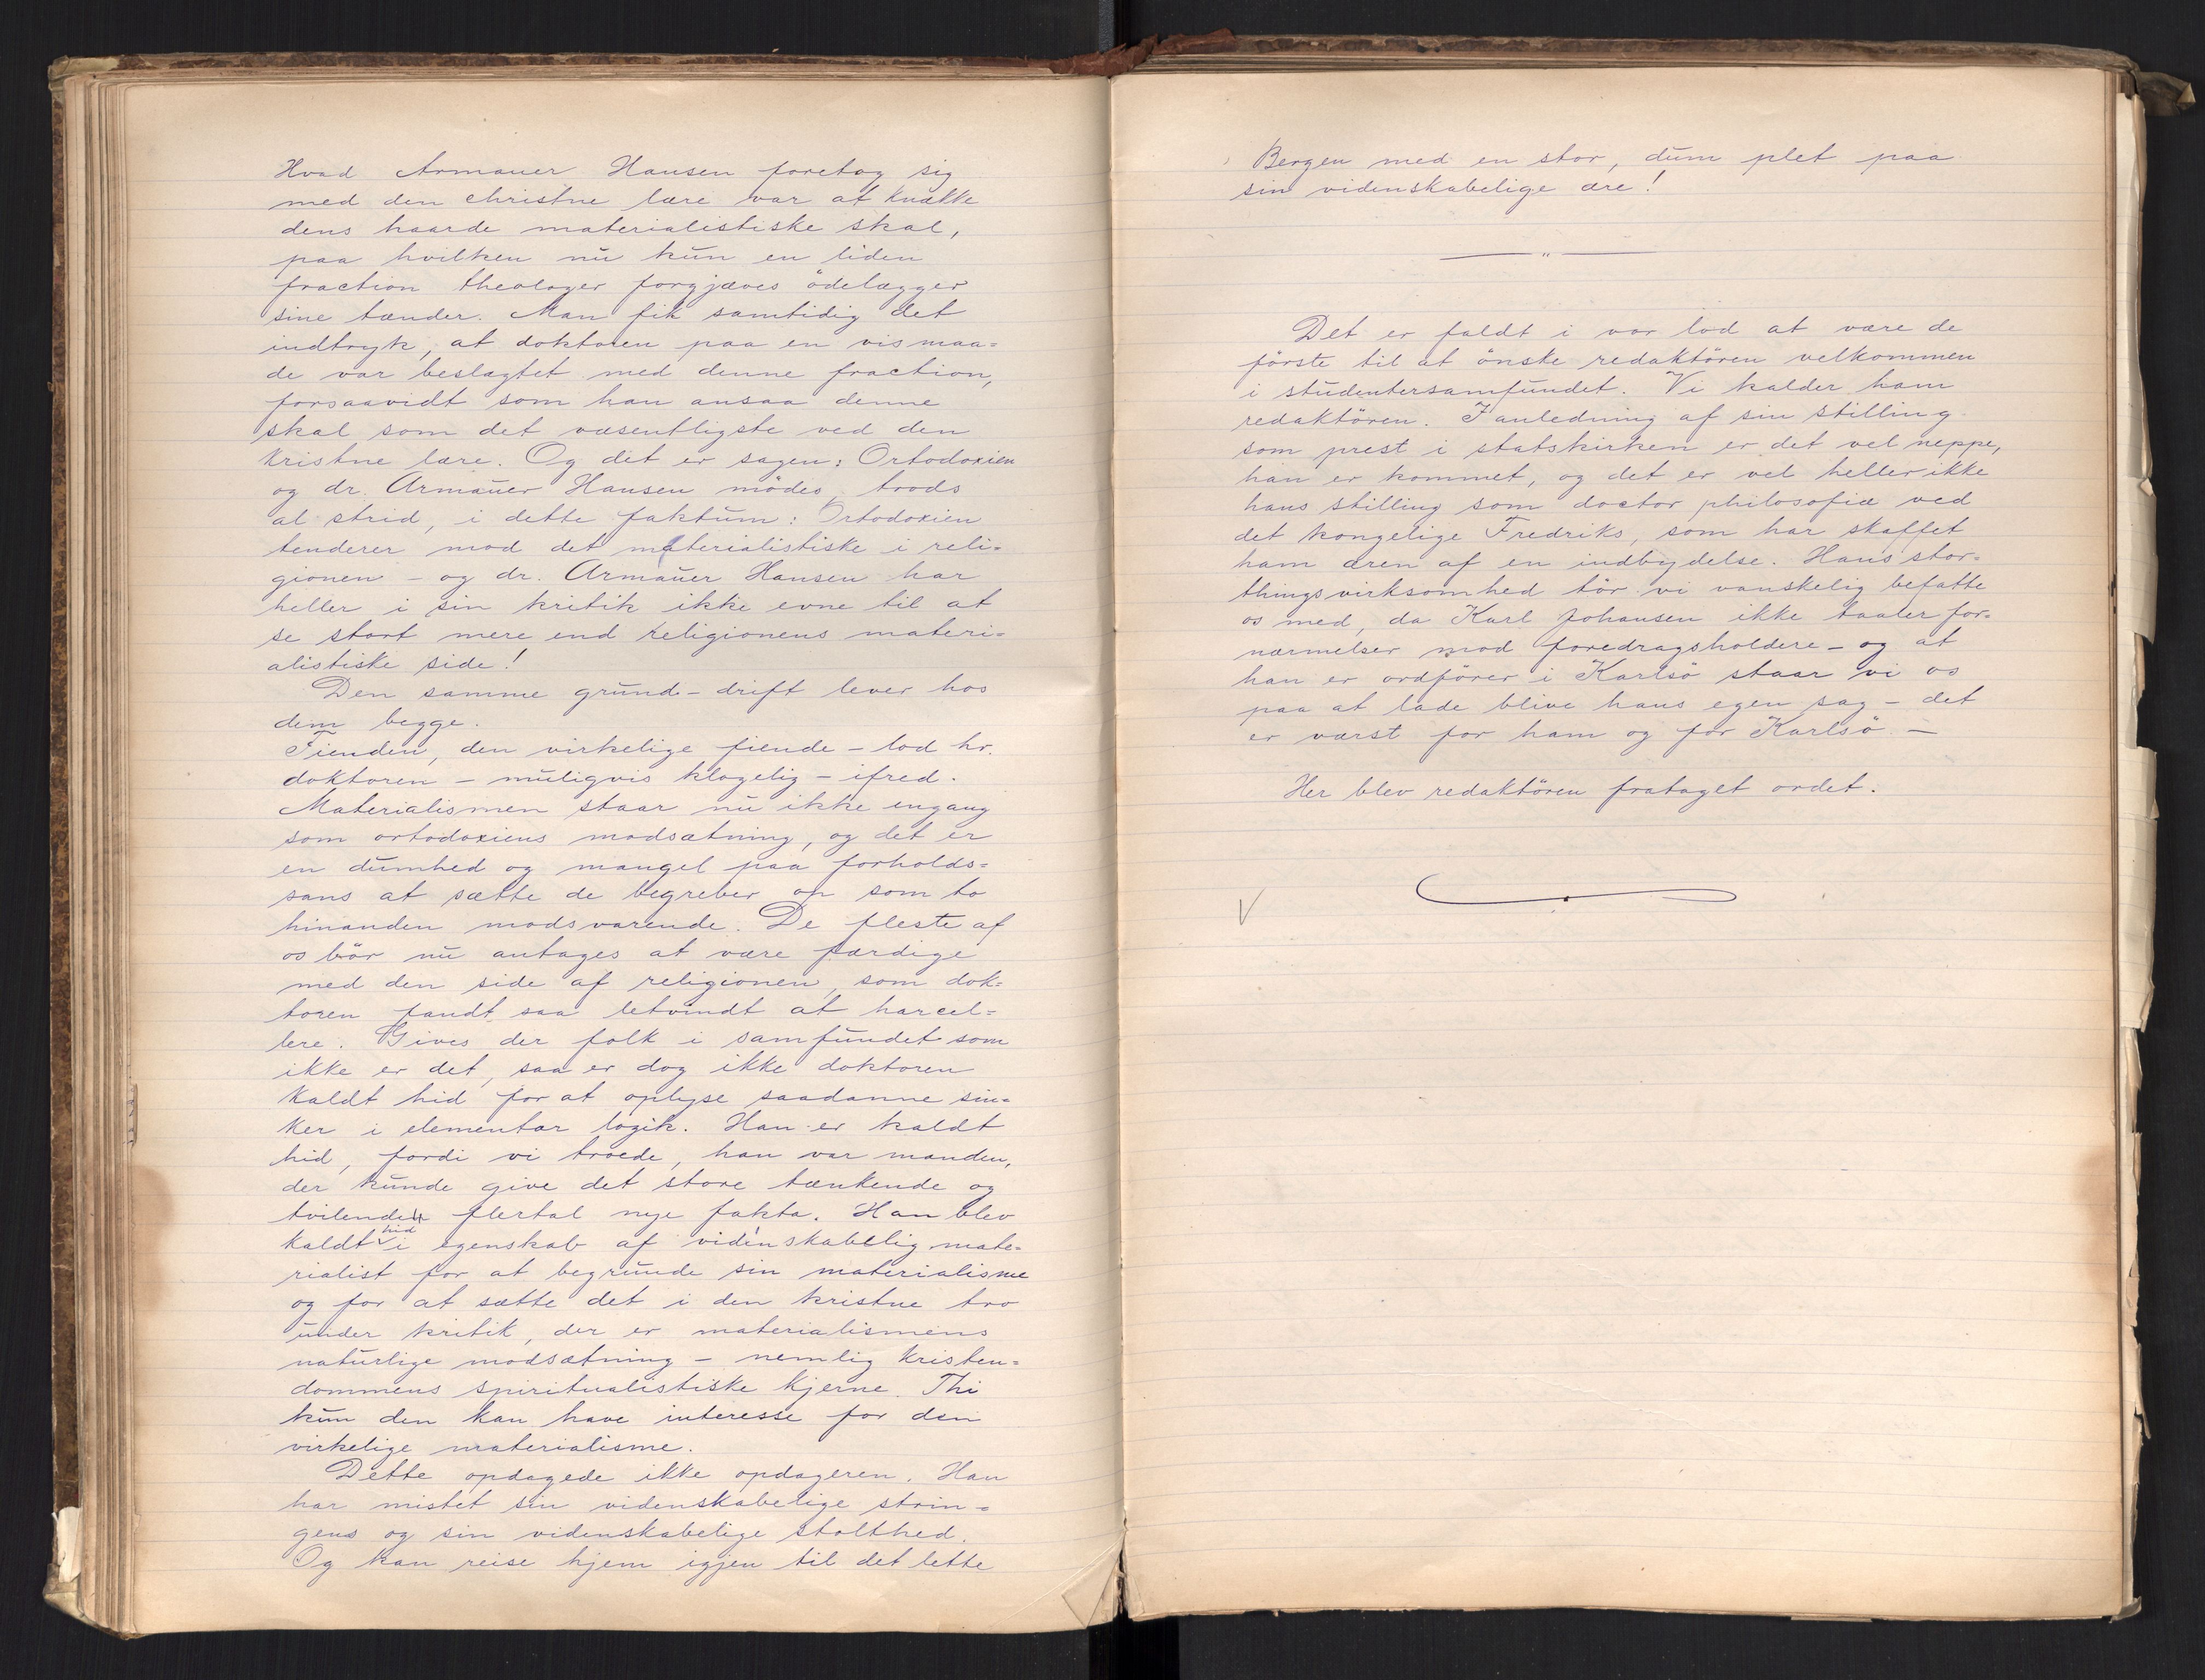 Hvad Armauer Hansen foretog sig
med den christne lære var at knække
dens haarde materialistiske skal,
paa hvilken nu kun en liden
fraction theologer forgjæves ödelægger
sine tænder. Man fik samtidig det
indtryk, at doktoren paa en vis maa=
de var beslægtet med denne fraction,
forsaavidt som han ansaa denne
skal som det væsentligste ved den
kristne lære. Og dét er sagen: Ortodoxien
og dr. Armauer Hansen mödes, trods
al strid, i dette faktum: Ortodoxien
tenderer mod det materialistiske i reli=
gionen - og dr. Armauer Hansen har
heller i sin kritik ikke evne til at
se stort mere end religionens materi=
alistiske side!
Den samme grund-drift lever hos
dem begge.
Fienden, den virkelige fiende - lod hr.
doktoren - muligvis klogelig - ifred.
Materialismen staar nu ikke engang
som ortodoxiens modsætning, og det er
en dumhed og mangel paa forholds=
sans at sætte de begreber op som to
hinanden modsvarende. De fleste af
os bör nu antages at være færdige
med den side af religionen, som dok=
toren fandt saa letvindt at harcel=
lere. Gives der folk i samfundet som
ikke er det, saa er dog ikke doktoren
kaldt hid for at oplyse saadanne sin=
ker i elementær logik. Han er kaldt
hid, fordi vi troede, han var manden,
der kunde give det store tænkende og
tvilende flertal nye fakta. Han blev
kaldt hid i egenskab af videnskabelig mate=
rialist for at begrunde sin materialisme
og for at sætte det i den kristne tro
under kritik, der er materialismens
naturlige modsætning - nemlig kristen=
dommens spiritualistiske kjerne. Thi
kun den kan have interesse for den
virkelige materialisme.
Dette opdagede ikke opdageren. Han
har mistet sin videnskabelige strin=
gens og sin videnskabelige stolthed.
Og kan reise hjem igjen til det lette
Bergen med en stor, dum plet paa
sin videnskabelige ære!
Det er faldt i vor lod at være de
förste til at önske redaktören velkommen
i studentersamfundet. Vi kalder ham
redaktören. I anledning af sin stilling
som prest i statskirken er det vel neppe,
han er kommet, og det er vel heller ikke
hans stilling som doctor philosofiæ ved
det kongelige Fredriks, som har skaffet
ham æren af en indbydelse. Hans stor=
thingsvirksomhed tör vi vanskelig befatte
os med, da Karl Johansen ikke taaler for=
nærmelser mod foredragsholdere - og at
han er ordförer i Karlsö staar vi os
paa at lade blive hans egen sag - det
er værst for ham og for Karlsö. -
Her blev redaktören frataget ordet.